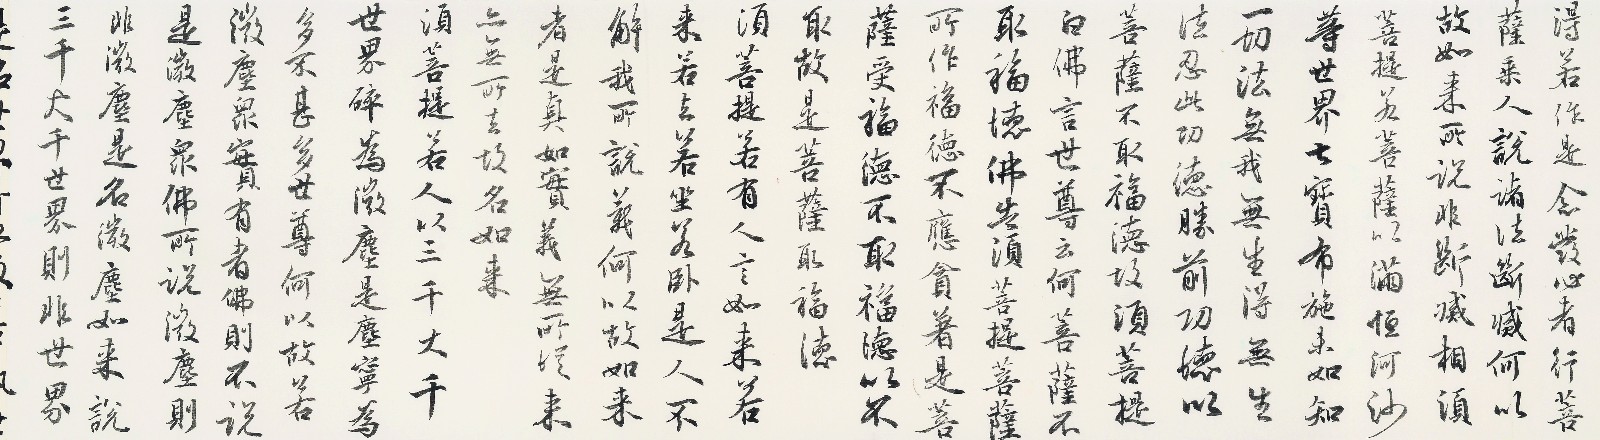 得若作是念發心者行菩
薩乘人說諸法斷滅何以
故如来所说非斷滅相須
菩提若菩薩以滿恒河沙
等世界七寶布施若如知
一切法無我無生得無生
法忍此功德勝前功德以
菩薩不取福德故須菩提
白佛言世尊云何菩薩不
取福德佛告須菩提菩薩
所作福德不應貪著是菩
薩受福德不取福德以不
取故是菩薩取福德
須菩提若有人言如来若
来若去若坐若卧是人不
解我所說義何以故如来
者是真如實義無所從来
亦無所去故名如来
須菩提若人以三千大千
世界碎為微塵是塵寧為
多不甚多世尊何以故若
微塵眾實有者佛則不说
是微塵眾佛所说微塵則
非微塵是名微塵如来說
三千大千世界則非世界